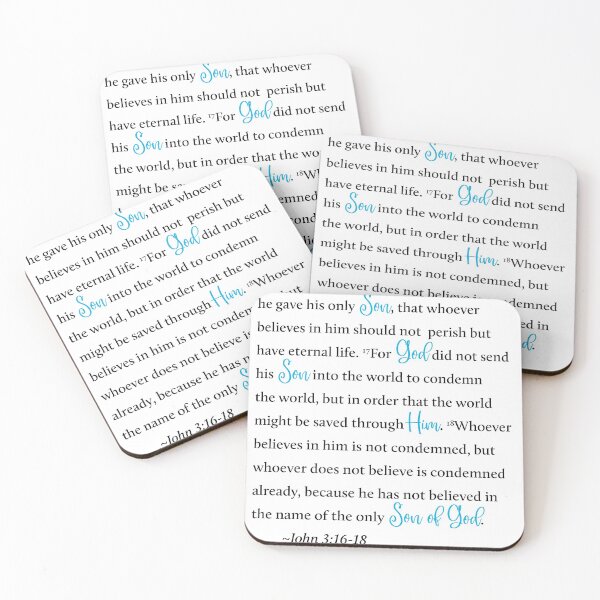 he gave his only Son, that whoever
believes in him should not perish but
have eternal life. ¹⁷For God did not send
his Son into the world to condemn
the world, but in order that the
might be Him.
he gave his only Son, that whoever
believes in him should not perish but
have eternal life. ¹⁷For God did not send
his Son into the world to condemn
the world, but in order that the world
might be saved through Him. ¹⁸Whoever
believes in him is not condemned, but
whoever does not believe is condemned
in
he gave his only Son, that whoever
believes in him should not perish but
have eternal life. ¹⁷For God did not send
his Son into the world to condemn
the world, but in order that the world
might be saved through Him. ¹⁸Whoever
believes in him is not condemned,
whoever does not believe is
already, because he has not
the name of the only
~John 3:16-18
he gave his only Son, that whoever
believes in him should not perish but
have eternal life. ¹⁷For God did not send
his Son into the world to condemn
the world, but in order that the world
might be saved through Him. ¹⁸Whoever
believes in him is not condemned, but
whoever does not believe is condemned
already, because he has not believed in
the name of the only Son of God.
~John 3:16-18